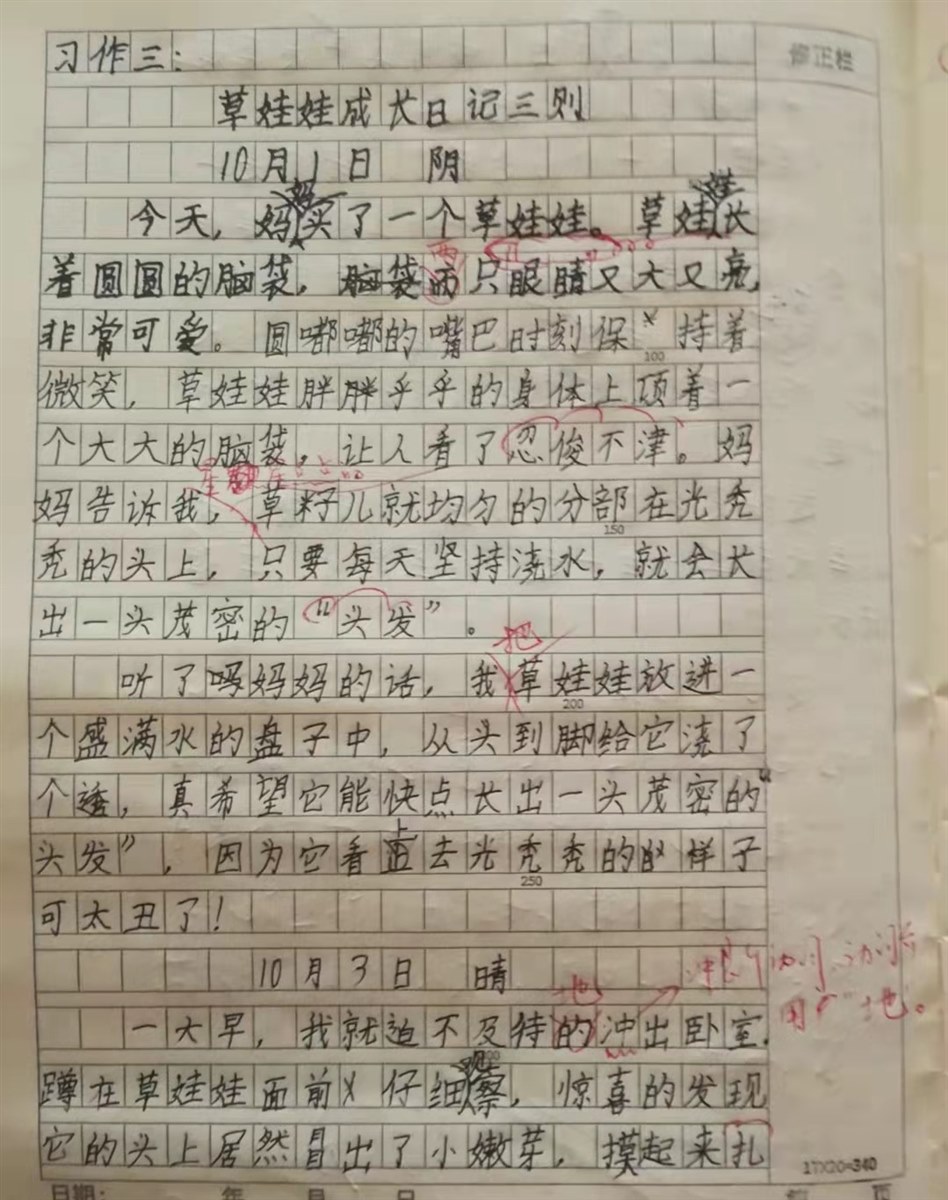 习作三:
修正栏
草娃娃成长日记三则
10月1日 阴
今天,妈妈买了一个草娃娃。草娃娃长
着圆圆的脑袋,脑袋两只眼睛又大又亮,
非常可爱。圆嘟嘟的嘴巴时刻保持着
100
微笑,草娃娃胖胖乎乎的身体上顶着一
个大大的脑袋,让人看了忍俊不津。妈
妈告诉我,草籽儿就均匀的分部在光秃
150
秃的头上,只要每天坚持浇水,就会长
出一头茂密的“头发”。
把
听了妈妈的话,我草娃娃放进一
200
个盛满水的盘子中,从头到脚给它浇了
个透,真希望它能快点长出一头茂密的“
头发”,因为它看上去光秃秃的的样子
250
可太丑了!
10月3日 晴
地
冲是个动词,动词前
用“地。
一大早,我就迫不及待的冲出卧室,
蹲在草娃娃面前仔细观察,惊喜的发现
它的头上居然冒出了小嫩芽,摸起来扎
17X20=340
日期: 年 月 日 页